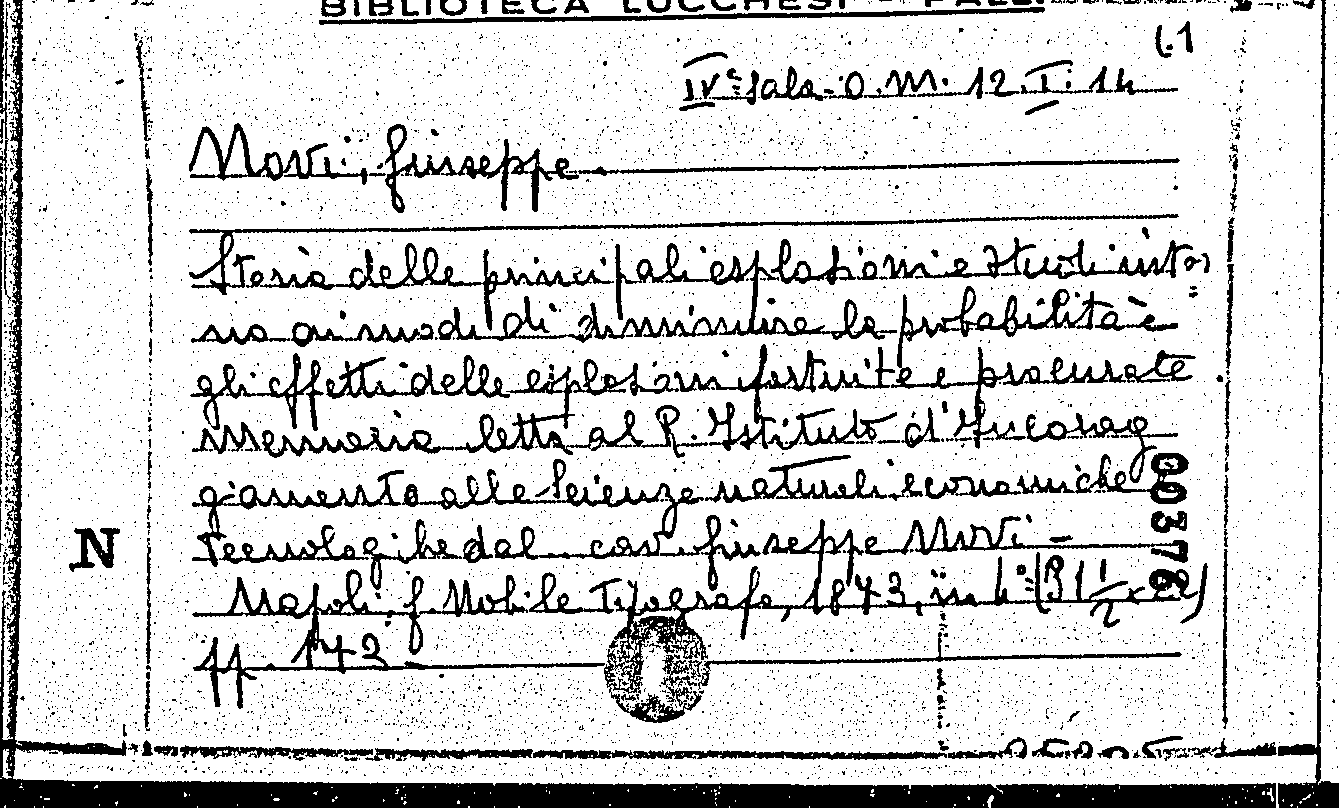 BIBLIOTECA LUCCHESI - PALLI
(.1
IVª Sala. O. M. 12. I. 14
Novi, Giuseppe.
Storia delle principali esplosioni e studi intor
no ai modi di diminuire la probabilità e
gli effetti delle esplosioni fortuite e procurate
Memoria letta al R. Istituto d'Incorag
giamento alle Scienze naturali, economiche
tecnologiche dal cav. Giuseppe Novi -
N
Napoli, G. Nobile Tipografo, 1873, in 4° (31 1/2 x 22)
pp. 173
00378